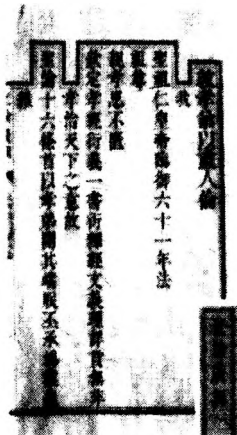 敦孝弟以重人倫
我
聖祖仁皇帝臨御六十一年法
祖尊
親孝思不匱
欽定孝經衍義一書衍釋經文義理詳貫無非
孝治天下之意故
聖諭十六條首以孝弟開其端朕丕承鴻業